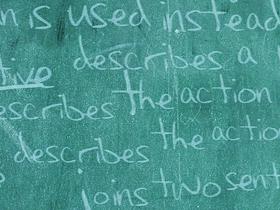 n is used instead
tive describes a
escribes the action
describes the actio
joins two sent